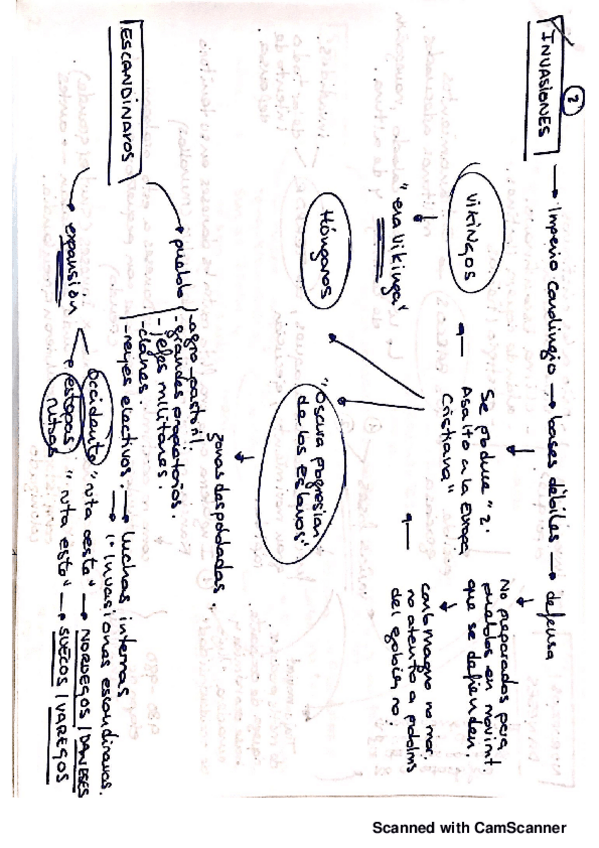 2
INVASIONES → Imperio Carolingio → bases débiles → defensa
No preparados para
pueblos en movimt.
que se defienden.
Se produce "2º
Asalto a la Europa
Cristiana"
Carlomagno no mor.
no atento a
del gobierno.
VIKINGOS
"era vikinga"
Húngaros
"Oscura progresión
de los Eslavos"
zonas despobladas.
ESCANDINAVOS
→ pueblo
- agro-pastoril.
- grandes propietarios.
- jefes militares.
- clanes.
- reyes electivos. → luchas internas
→ 1ª invasiones escandinavas.
→ expansión
Occidente "ruta oeste" → NORUEGOS / DANESES
estepas "ruta este" → SUECOS / VAREGOS
rusas
Scanned with CamScanner